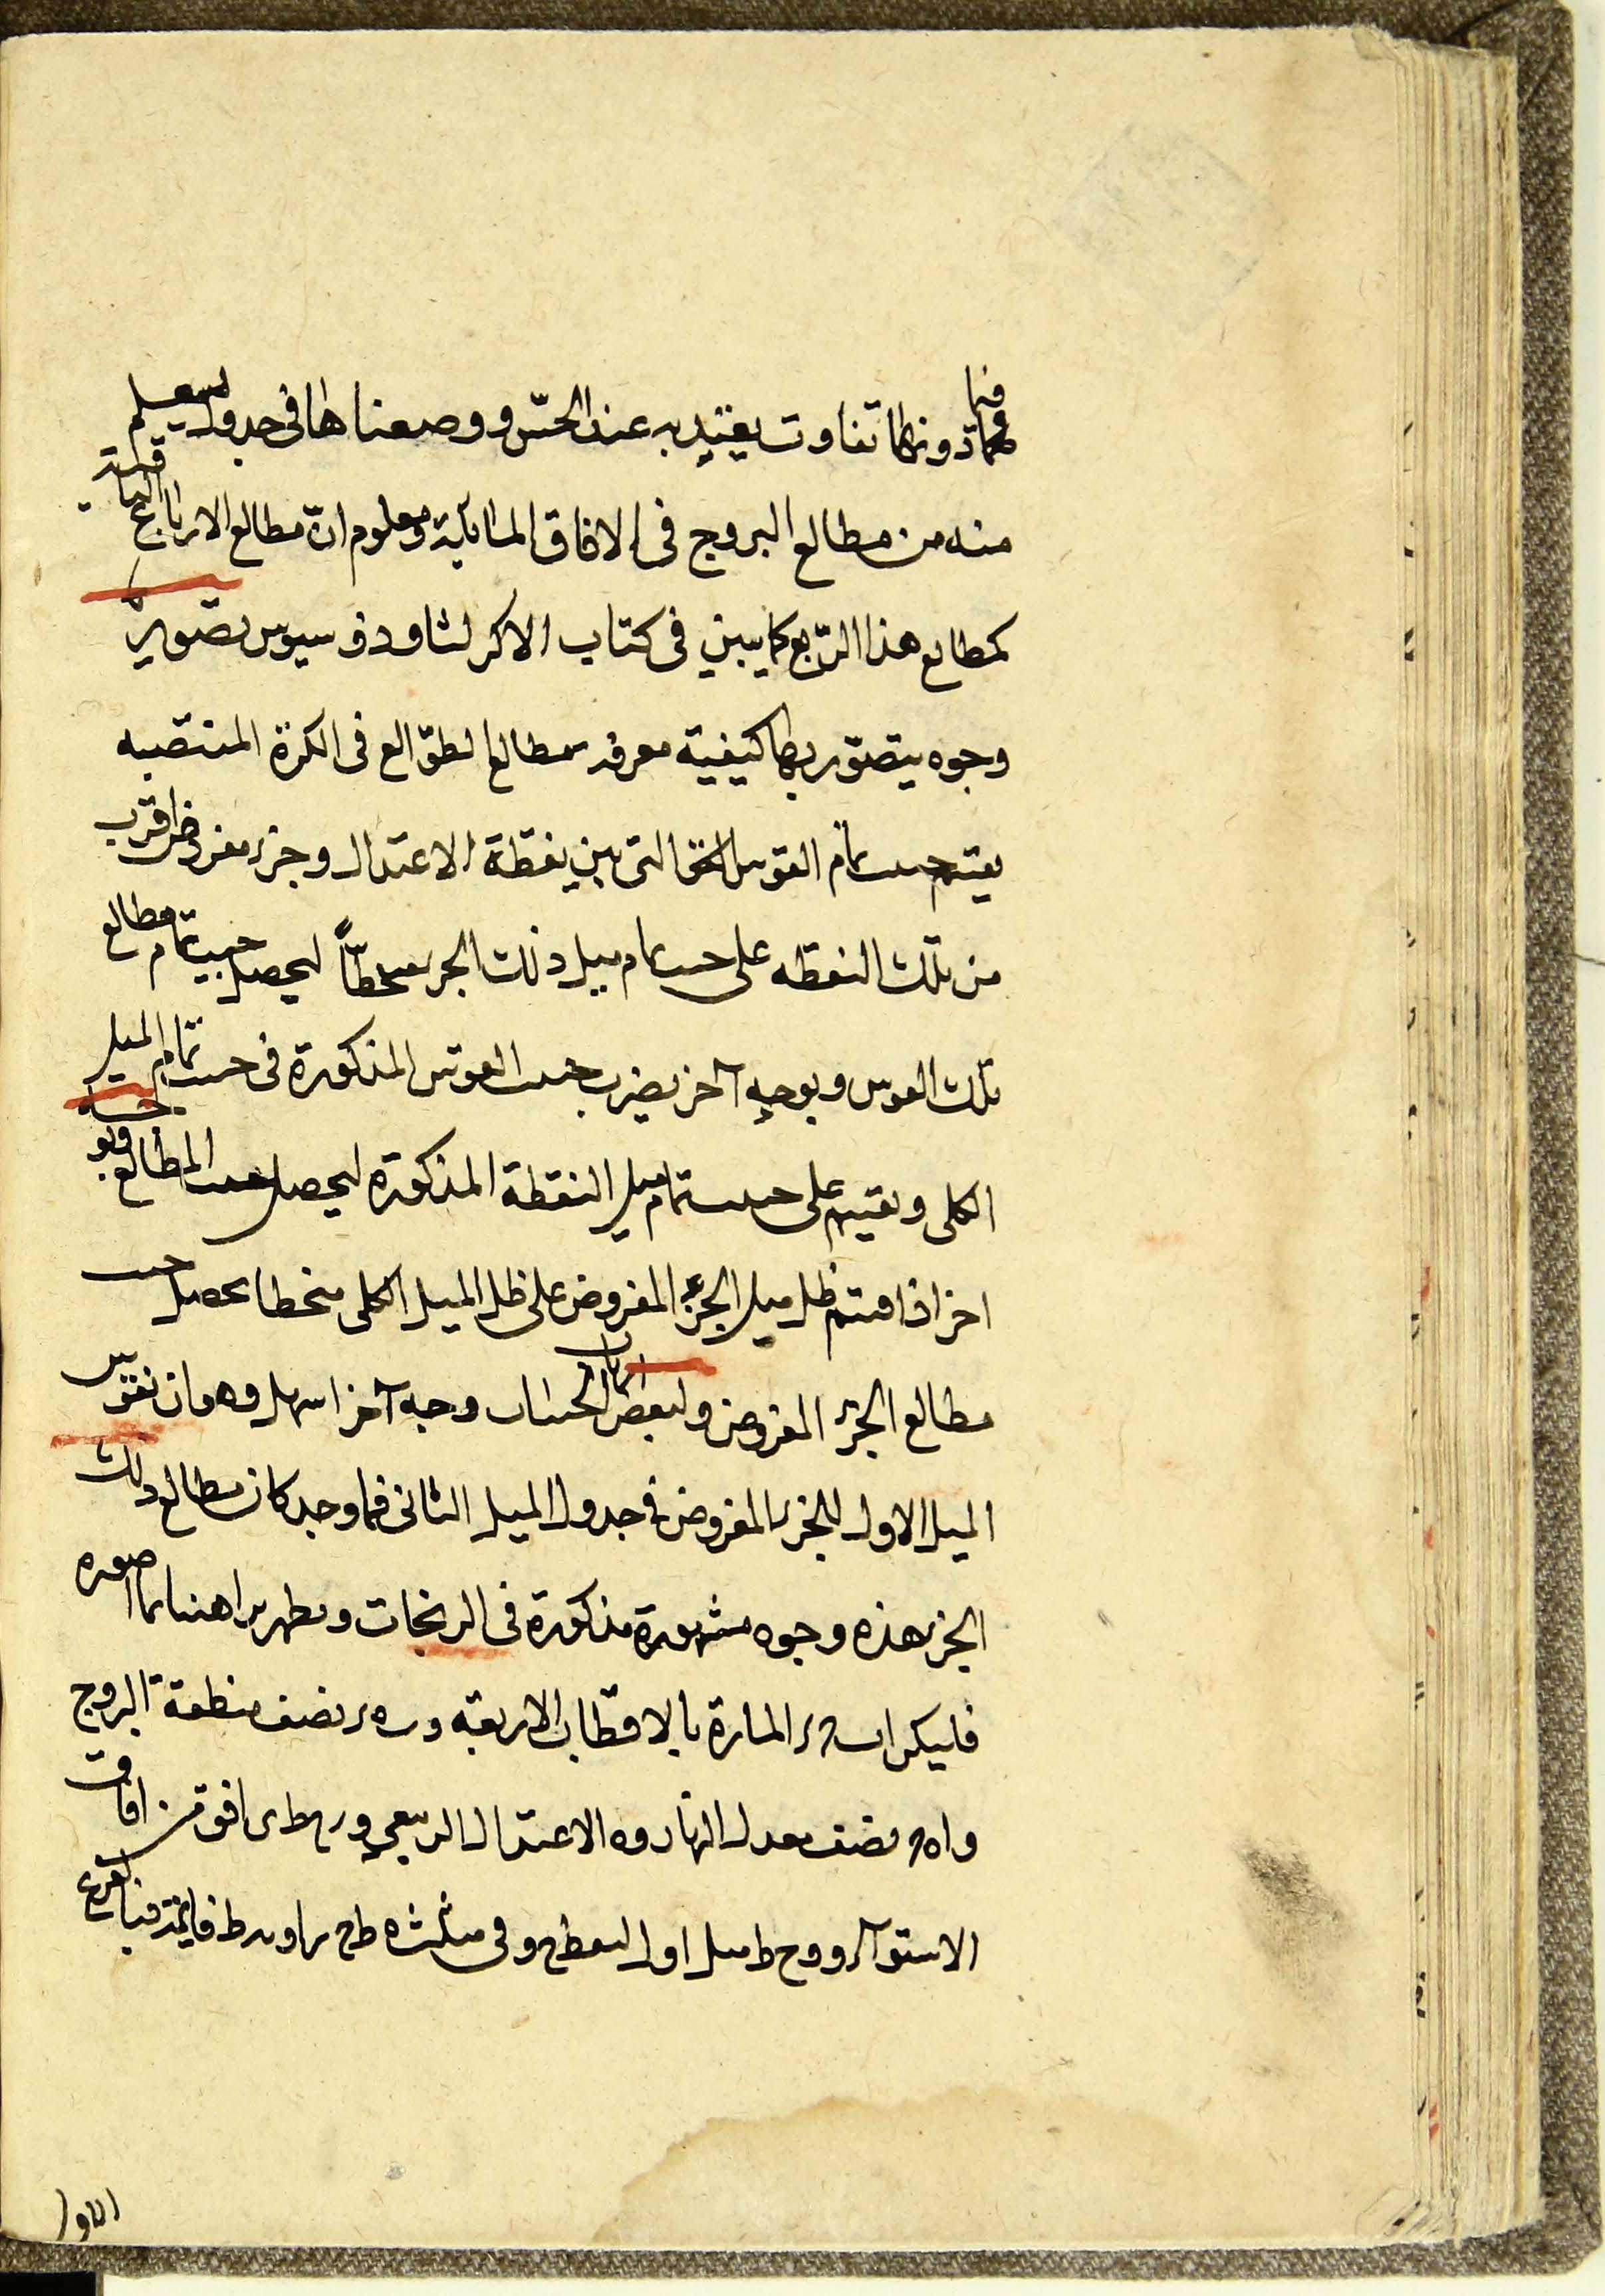 فيما دونها تفاوت يعتد به عند الحسّ ووضعناها فى جدول ليعلم
منه من مطالع البروج فى الافاق المائلة ومعلوم انّ مطالع الارباع الباقية
كمطالع هذا الرّبع كما يبين فى كتاب الاكر لثاوذوسيوس تصوير
وجوه يتصوّر بها كيفية معرفة مطالع الطوّالع فى الكرة المنتصبه
يقسم جيب تمام القوس التى بين نقطة الاعتدال وجزء مفروض اقرب
من تلك النقطه على جيب تمام ميل ذلك الجزء منحطّاً ليحصل جيب تمام مطالع
تلك القوس وبوجه آخر يضرب جيب القوس المذكورة فى جيب تمام الميل
الكلى ويقسم على جيب تمام ميل النقطة المذكورة ليحصل جيب المطالع وبوجه
اخر اذا قسم ظل ميل الجزء المفروض على ظل الميل الكلى منحطا يحصل جيب
مطالع الجزء المفروض ولبعض الحساب وجه آخر اسهل وهو ان نقوس
الميل الاول للجزء المفروض فى جدول الميل الثانى فما وجد كان مطالع ذلك
الجزء هذه وجوه مشهورة مذكورة فى الزيجات ويظهر براهنها بما اصوره
فليكن ا المارة بالاقطاب الاربعه و نصف منطقة البروج
و نصف معدل النهار وه الاعتدال الربيعى و افق من افاق
الاستوآء و ح ط ميل اول لنقطة ح وفى مثلث ه ط ح